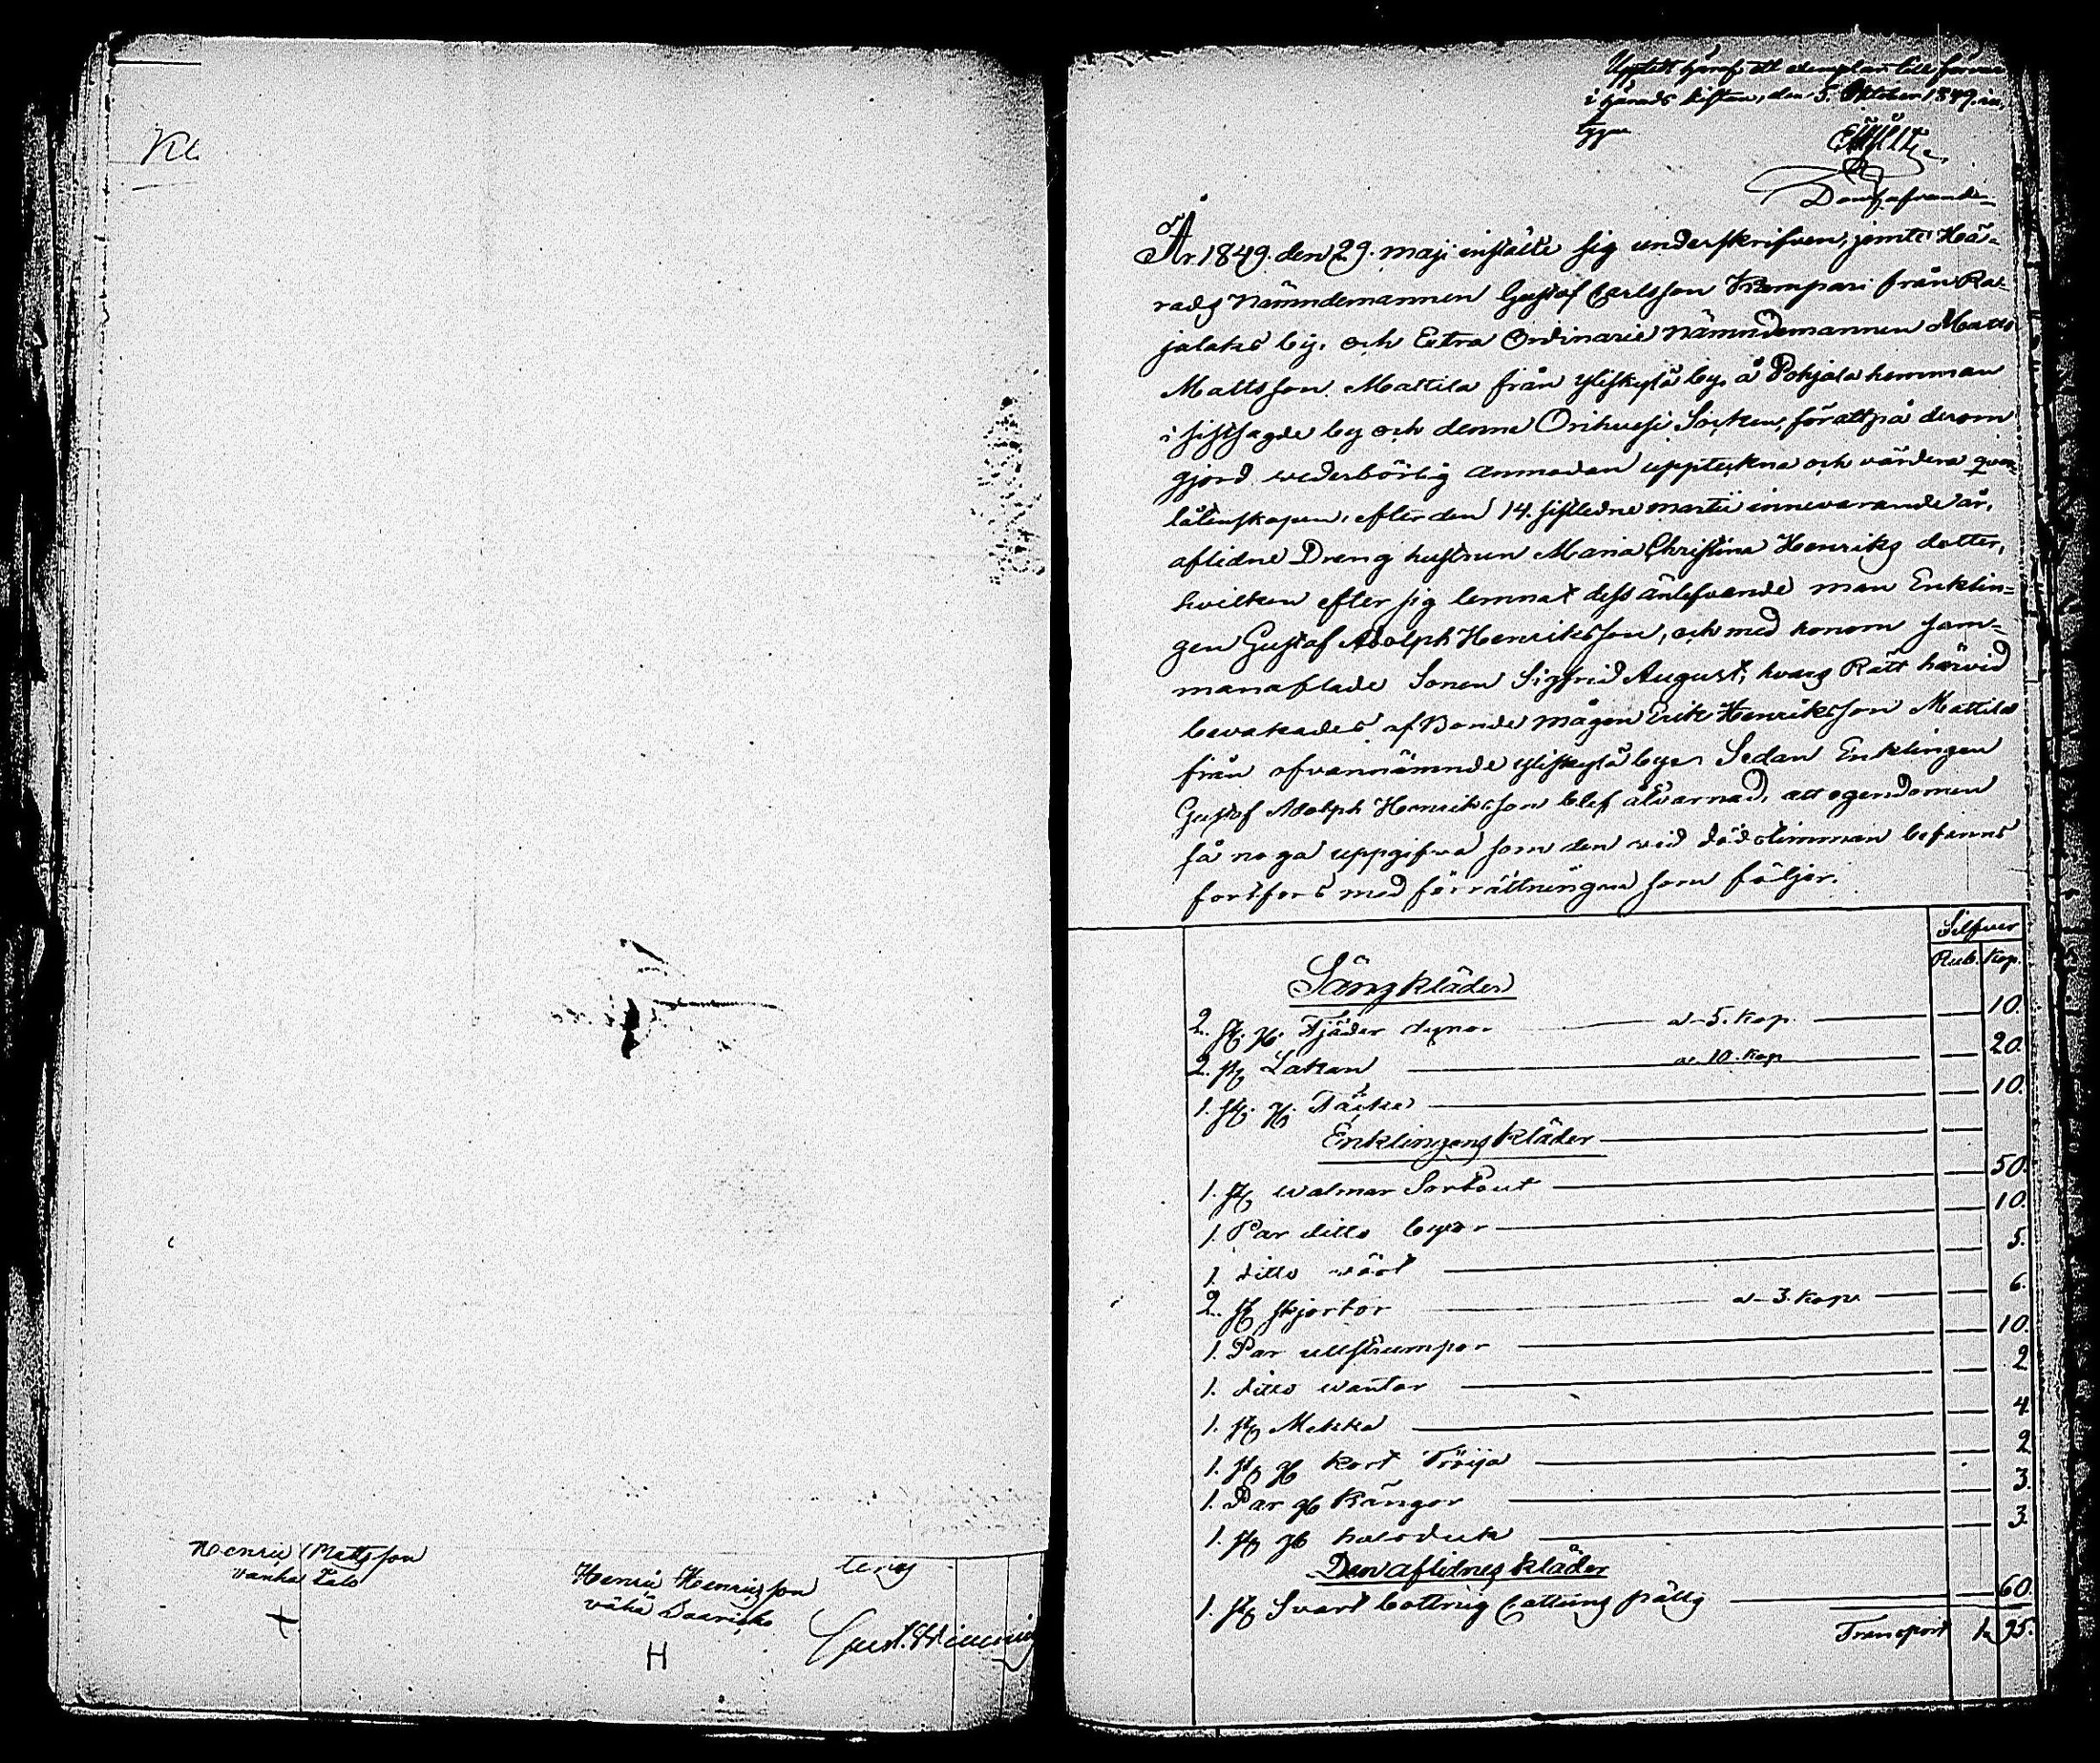 Kl
Henric Mattsson
vanha Talo
Henric Henricsson
vähä Saarioko
H
Gust. Hemming
i härads kistan, den 5. Oktober 1849. in
tygar
År 1849. den 29. maji instälte sig underskrifven, jemte Hä-
rads Nämndemannen Gustaf Carlsson Kampari från Ra-
jalaks by. och Extra Ordinarie Nämndemannen Matts
Mattsson Mattila från Yliskylä by, å Pohjala hemman
i sistsagde by och denne Orihvesi Socken, för att på derom
gjord vederbörlig anmodan uppteckna och värdera qvar-
låtenskapen, efter den 14. sistledne martii innevarande år,
aflidne Dreng hustrun Maria Christina Henriks dotter,
hvilken efter sig lemnat dess änlefvande man Enklin-
gen Gustaf Adolph Henriksson, och med honom sam-
manaflade Sonen Sigfrid August, hvars Rätt härvid
bevakades af Bonde mågen Erik Henriksson Mattila
från ofvannämnde Yliskylä by. Sedan Enklingen
Gustaf Adolph Henriksson blef åtvarnad, att egendomen
så noga uppgifva som den vid dödstimman befanns
fortfors med förrättningen som följer.
Silfver
Rub. Kop.
Sängkläder
2. st. H. Fjäder dynor a 5. kop 10.
2. st Lakan a 10. kop 20.
1. st. H. Täcke 10.
Enklingens kläder
1. st walmar Sortout 50.
1. Par ditto byxor 10.
1 ditto väst 5.
2. st skjortor a 3. kop 6.
1. Par ullstrumpor 10.
1. ditto wantar 2
1. st Mekko 4.
1. st H kort Tröija 2
1. Par H Kängor 3.
1. st H halsduk 3.
Den aflidnes kläder
1. st Svart Cattung 60.
Transport 1 95.